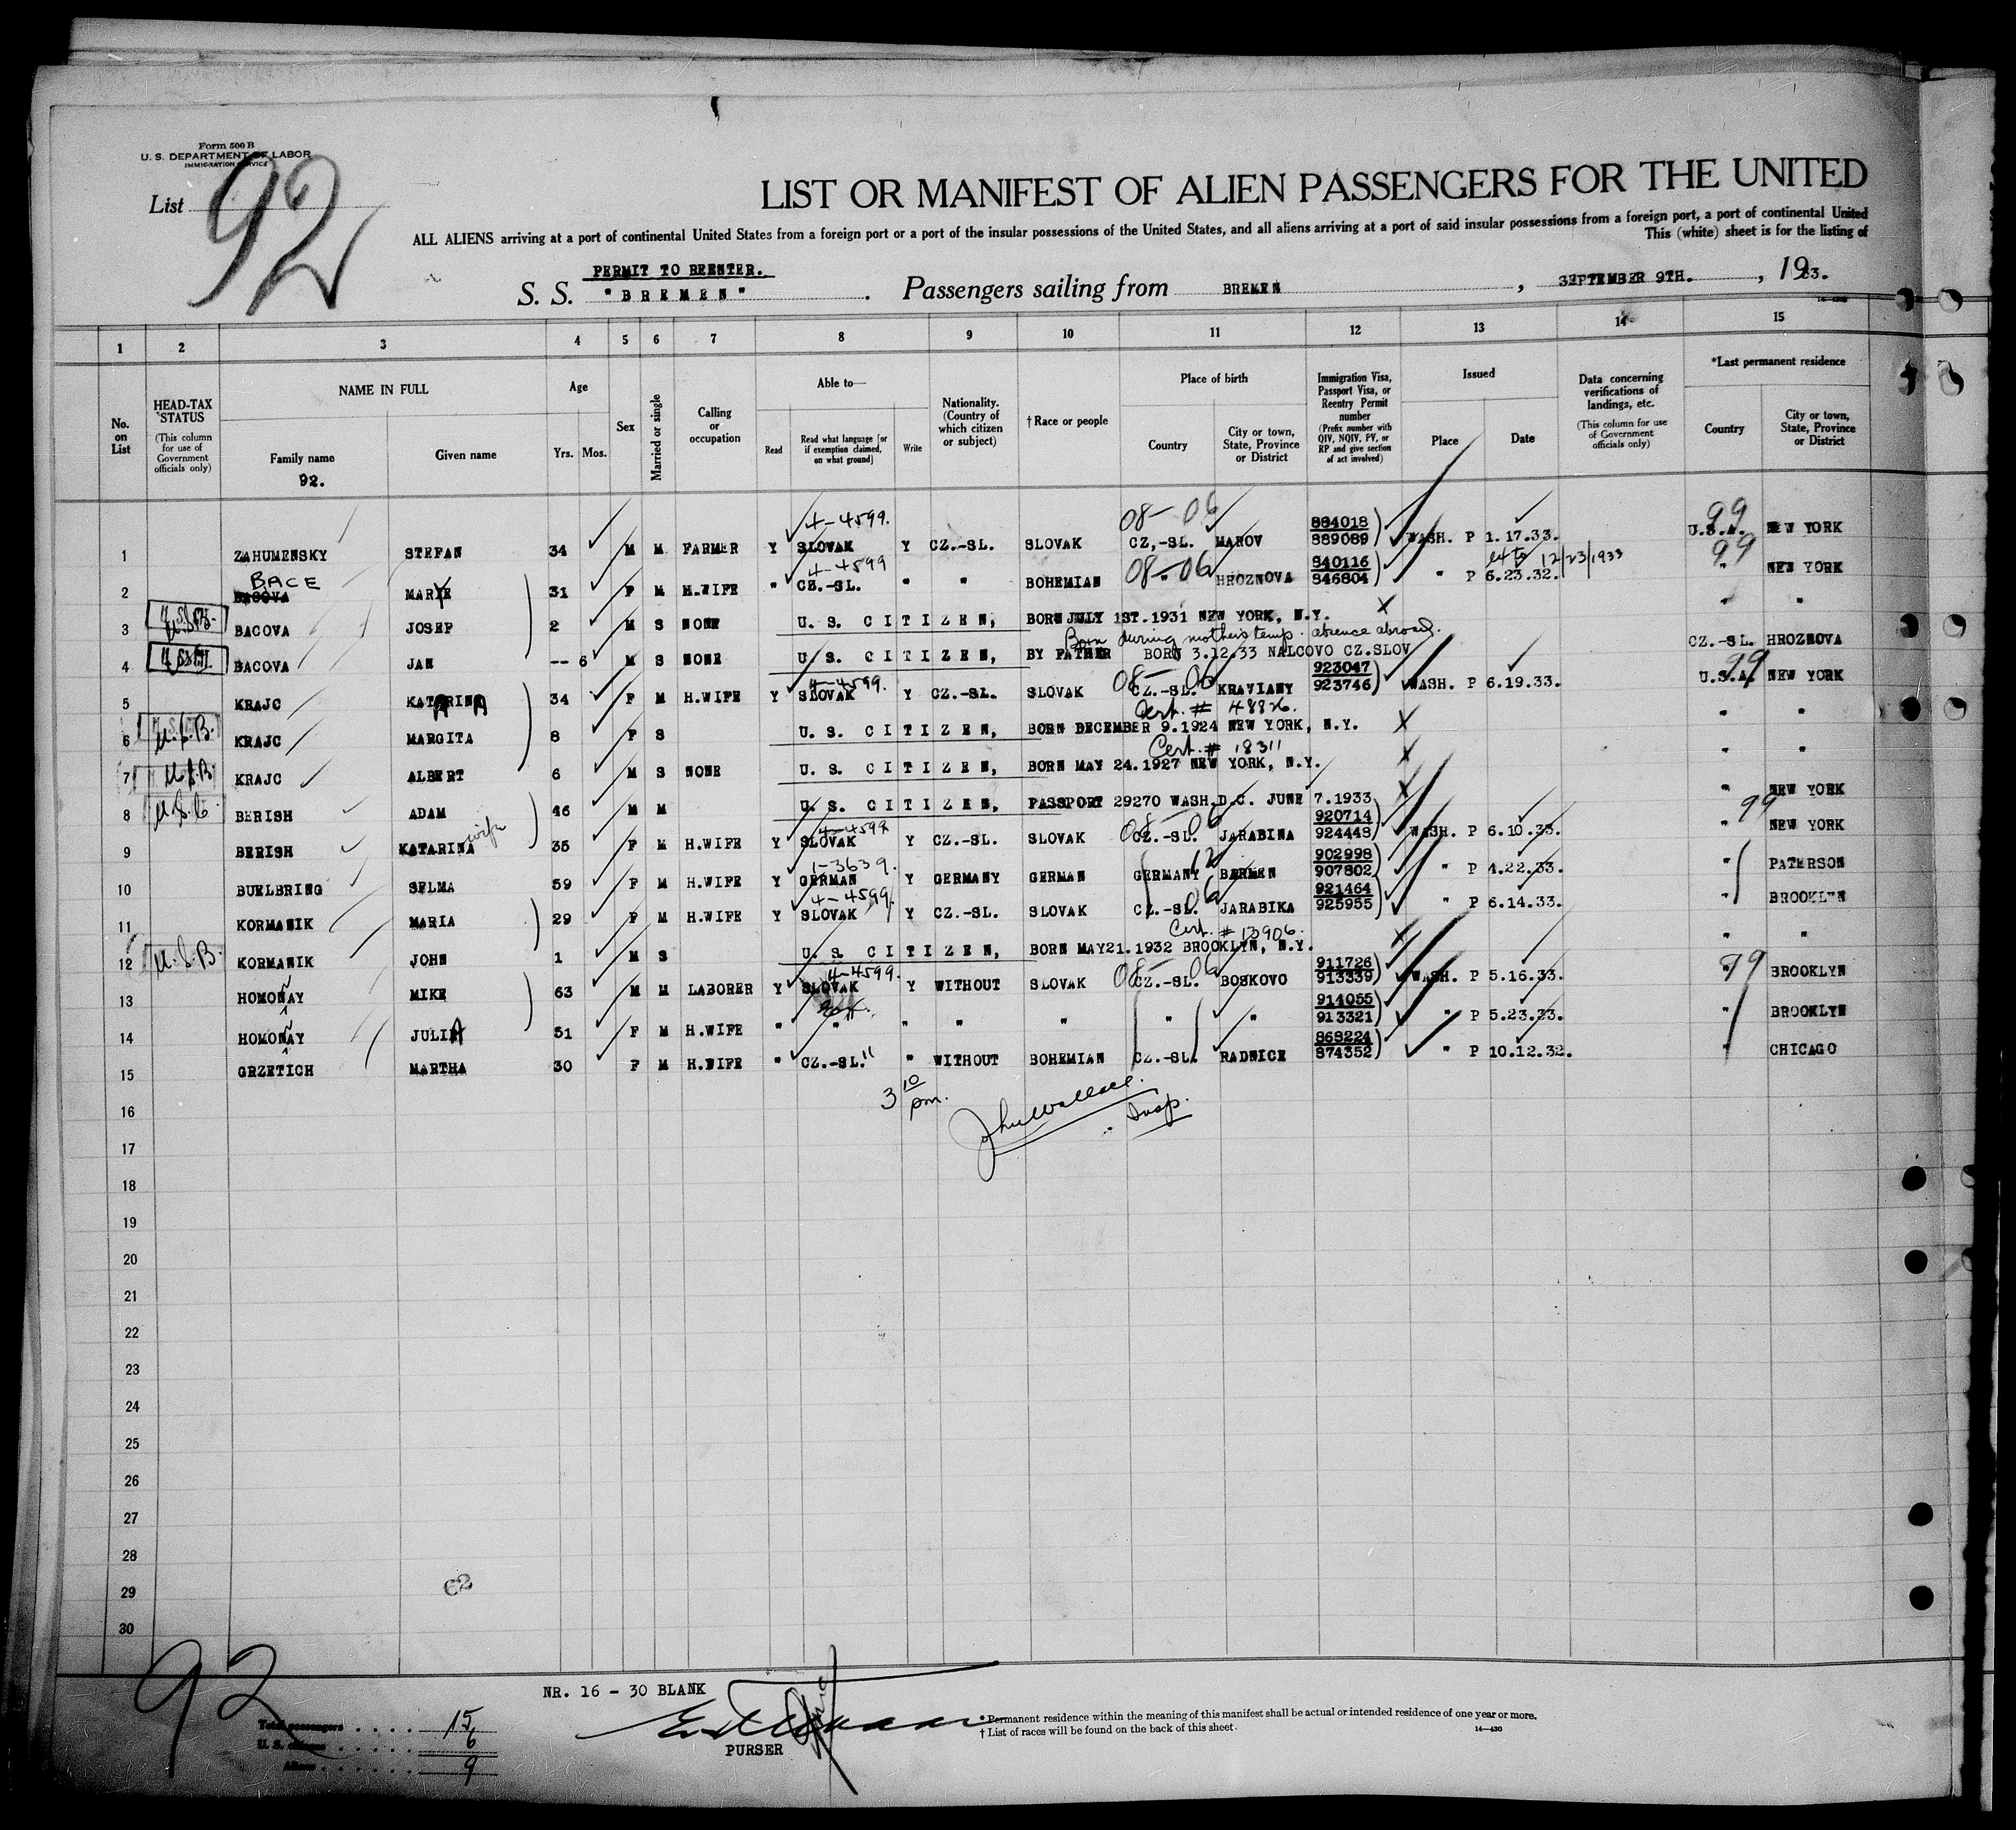 Form 500 B
U. S. DEPARTMENT OF LABOR
IMMIGRATION SERVICE
List 92
LIST OR MANIFEST OF ALIEN PASSENGERS FOR THE UNITED
ALL ALIENS arriving at a port of continental United States from a foreign port or a port of the insular possessions of the United States, and all aliens arriving at a port of said insular possessions from a foreign port, a port of continental United
This (white) sheet is for the listing of
PERMIT TO REENTER.
S. S. "BREMEN". Passengers sailing from BREMEN, SEPTEMBER 9TH., 1933.
1 2 3 4 5 6 7 8 9 10 11 12 13 14 15
No. on List
HEAD-TAX STATUS
(This column for use of Government officials only)
NAME IN FULL
Family name
92.
Given name
Age
Yrs. Mos.
Sex
Married or single
Calling or occupation
Able to—
Read
Read what language [or if exemption claimed, on what ground]
Write
Nationality. (Country of which citizen or subject)
†Race or people
Place of birth
Country
City or town, State, Province or District
Immigration Visa, Passport Visa, or Reentry Permit number
(Prefix number with QIV, NQIV, PV, or RP and give section of act involved)
Issued
Place
Date
Data concerning verifications of landings, etc.
(This column for use of Government officials only)
*Last permanent residence
Country
City or town, State, Province or District
4-4599. 08- 06 884018 99
1 ZAHUMENSKY STEFAN 34 M M FARMER Y SLOVAK Y CZ.-SL. SLOVAK CZ,-SL. MAROV 889089 WASH. P 1.17.33. U.S.A. NEW YORK
BACE 4-4599 08-06 840116 12/23/1933 99
2 BACOVA MARYE 31 F M H.WIFE " CZ.-SL. " " BOHEMIAN " HROZNOVA 846804 " P 6.23.32. " NEW YORK
3 BACOVA JOSEF 2 M S NONE U. S. CITIZEN, BORN JULY 1ST.1931 NEW YORK, N.Y. X " "
Born during mothers temp. absence abroad.
4 BACOVA JAN -- 6 M S NONE U. S. CITIZEN, BY FATHER BORN 3.12.33 NALCOVO CZ.SLOV CZ.-SL. HROZNOVA
4-4599. 08- 06 923047 99
5 KRAJC KATARINA 34 F M H.WIFE Y SLOVAK Y CZ.-SL. SLOVAK CZ.-SL. KRAVIANY 923746 WASH. P 6.19.33. U.S.A. NEW YORK
Cert. # 48826.
6 U.S.B. KRAJC MARGITA 8 F S U. S. CITIZEN, BORN DECEMBER 9.1924 NEW YORK, N.Y. X " "
Cert. # 18311
7 U.S.B. KRAJC ALBERT 6 M S NONE U. S. CITIZEN, BORN MAY 24.1927 NEW YORK, N.Y. X " "
8 U.S.C BERISH ADAM 46 M M U. S. CITIZEN, PASSPORT 29270 WASH.D.C. JUNE 7.1933 X " NEW YORK
wife 4-4599 08- 06 920714 99
9 BERISH KATARINA 35 F M H.WIFE Y SLOVAK Y CZ.-SL. SLOVAK CZ.-SL. JARABINA 924448 WASH. P 6.10.33. " NEW YORK
1-3639. 12 902998
10 BUELBRING SELMA 59 F M H.WIFE Y GERMAN Y GERMANY GERMAN GERMANY BARMEN 907802 " P 4.22.33. " PATERSON
4-4599. 06 921464
11 KORMANIK MARIA 29 F M H.WIFE Y SLOVAK Y CZ.-SL. SLOVAK CZ.-SL. JARABIKA 925955 " P 6.14.33. " BROOKLYN
Cert. # 13906.
12 U.S.B. KORMANIK JOHN 1 M S U. S. CITIZEN, BORN MAY21.1932 BROOKLYN, N.Y. X " "
4-4599. 08- 06 911726 99
13 HOMONAY MIKE 63 M M LABORER Y SLOVAK Y WITHOUT SLOVAK CZ.-SL. BOSKOVO 913339 WASH. P 5.16.33. " BROOKLYN
914055
14 HOMONAY JULIA 51 F M H.WIFE " " " " " " " 913321 " P 5.23.33. " BROOKLYN
868224
15 GRZETICH MARTHA 30 F M H.WIFE " CZ.-SL." " WITHOUT BOHEMIAN CZ.-SL. RADNICE 874352 " P 10.12.32. " CHICAGO
3 10 pm.
John Wallace. Insp.
16
17
18
19
20
21
22
23
24
25
26
27
28
29
30
92
NR. 16 - 30 BLANK
PURSER
Total passengers . . . . 15
U. S. citizens . . . . . 6
Aliens . . . . . . 9
*Permanent residence within the meaning of this manifest shall be actual or intended residence of one year or more.
†List of races will be found on the back of this sheet.
14—430